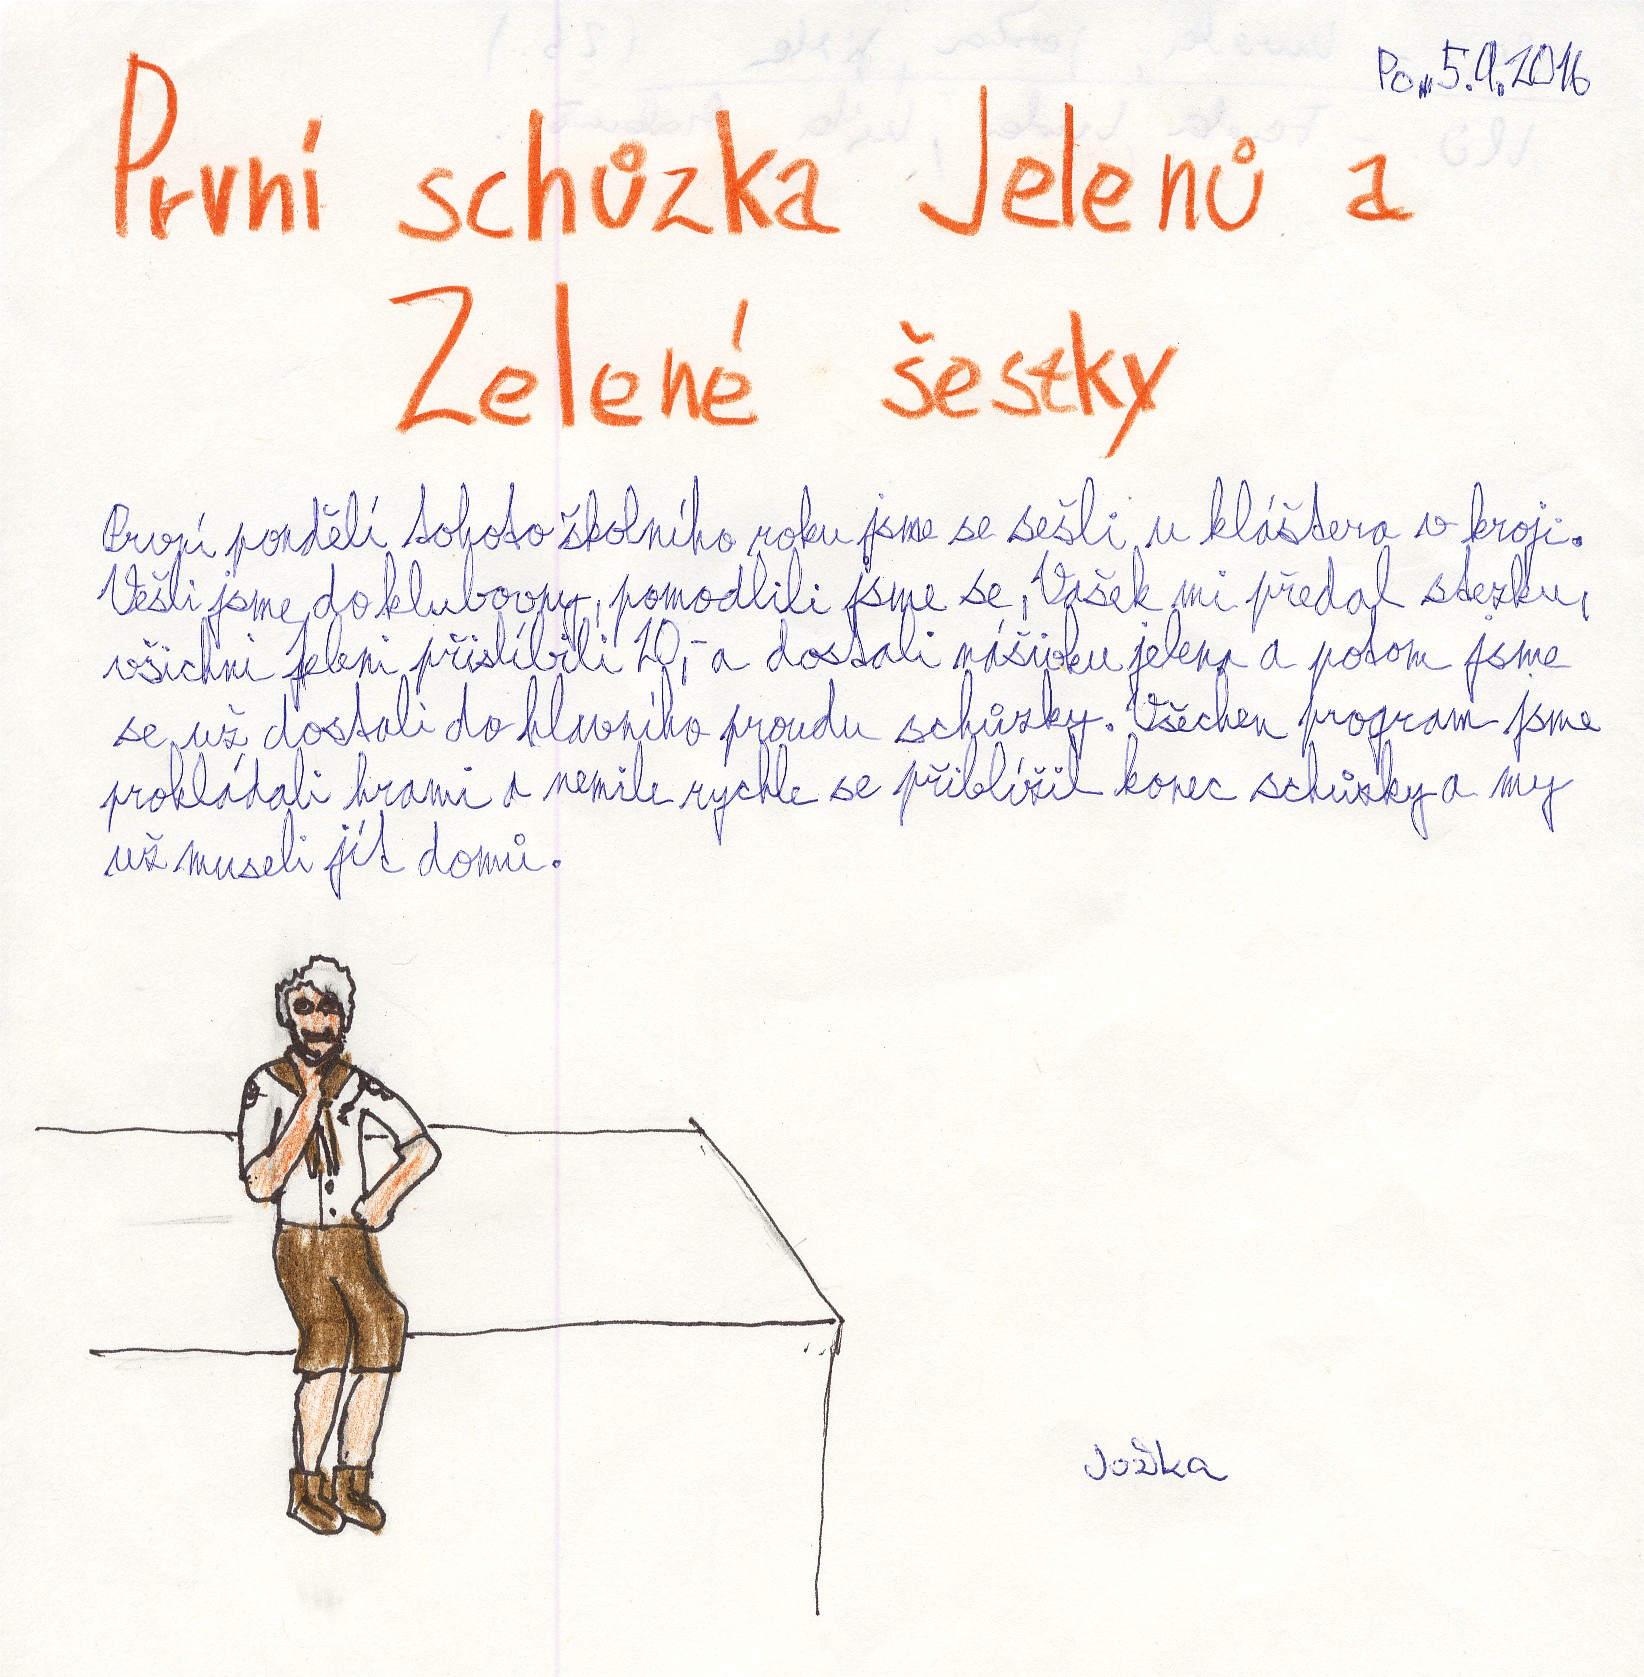 Po 5.9.2016
První schůzka Jelenů a
Zelené šestky
První pondělí tohoto školního roku jsme se sešli u kláštera v kroji.
Vešli jsme do klubovny, pomodlili jsme se, Vašek mi předal stezku,
všichni jeleni přislíbili 20,- a dostali nášivku jelena a potom jsme
se už dostali do hlavního proudu schůzky. Všechen program jsme
prokládali hrami a nemile rychle se přiblížil konec schůzky a my
už museli jít domů.
Jožka